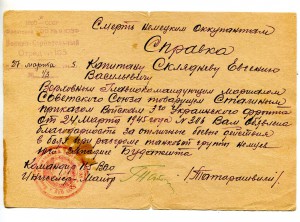 Смерть немецким оккупантам
Справка
27 марта 5
Капитану Скляднев Евгению
Васильевичу
Верховным Главнокомандующим Маршалом
Советского Союза товарищем Сталиным
приказом Войскам 3го Украинского Фронта
От 24 Марта 1945 года № 306 Вам объявлена
благодарность за отличные боевые действия
в боях при разгроме танковой группы немцев
юго-западнее Будапешта
Командир
Инженер-Майор